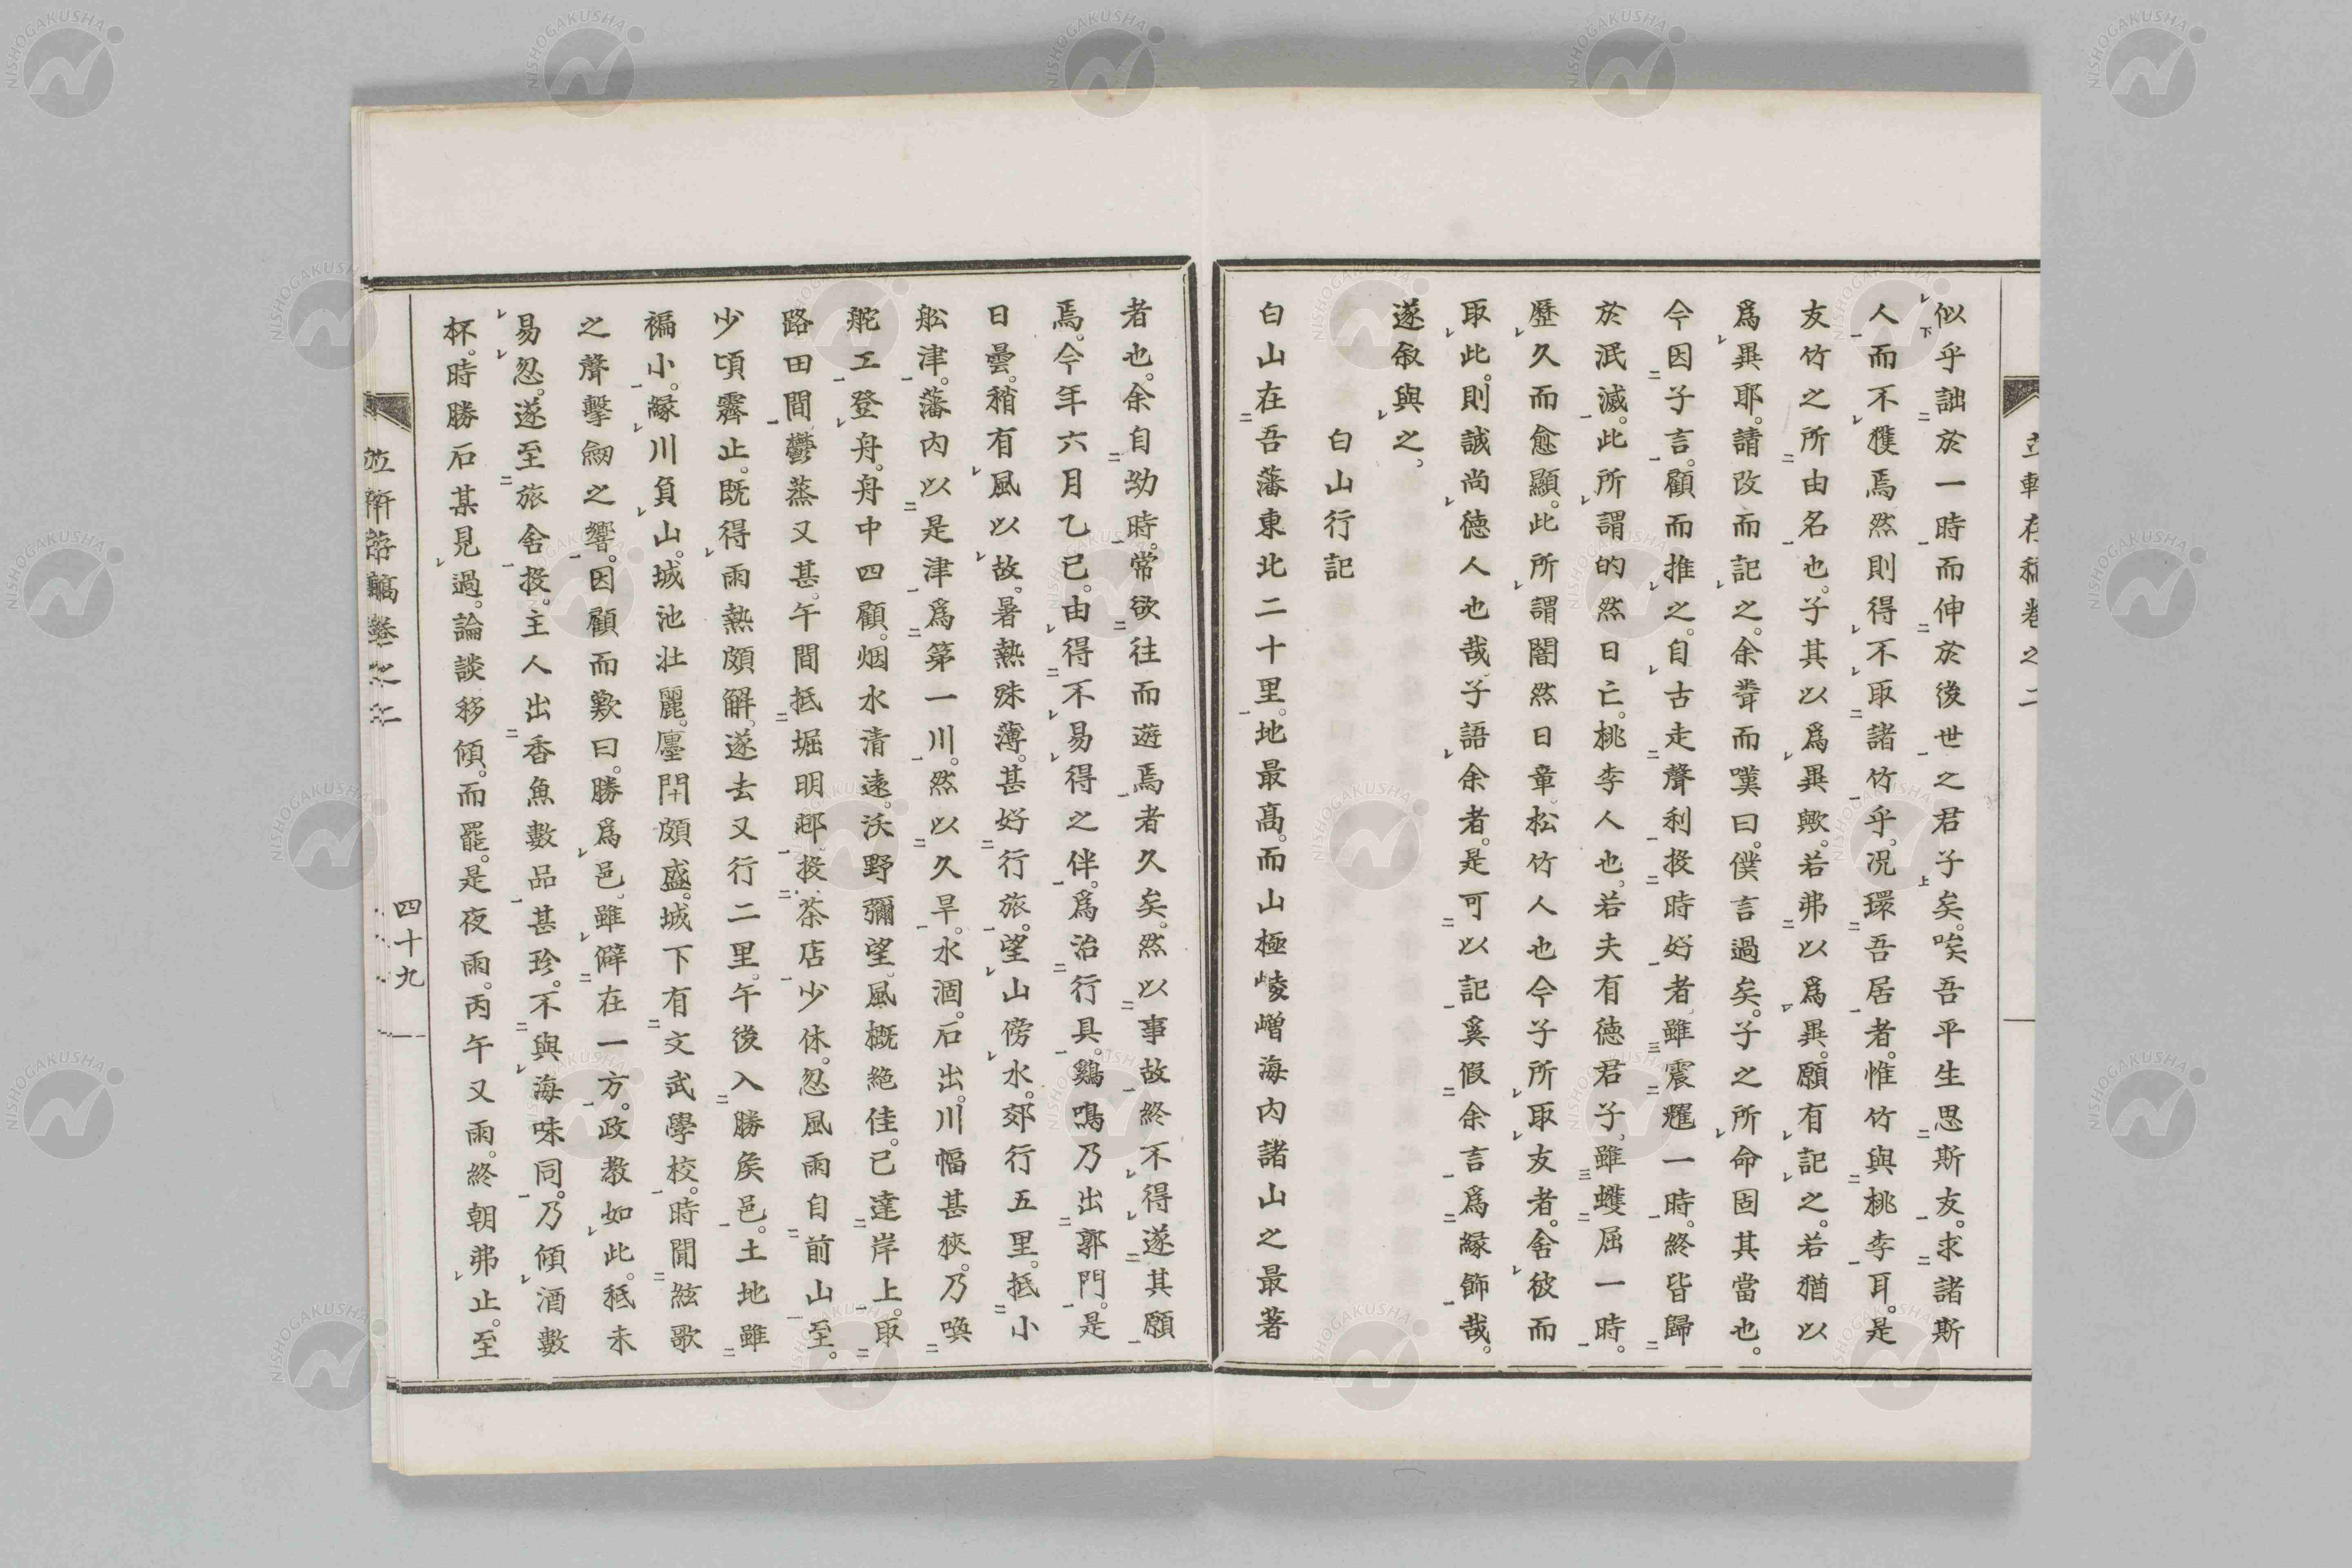 似乎詘於一時而伸於後世之君子矣。唉吾平生思斯友。求諸斯
人而不獲焉然則得不取諸竹乎。況環吾居者。惟竹與桃李耳。是
友竹之所由名也。子其以爲異歟。若弗以爲異。願有記之。若猶以
爲異耶。請改而記之。余聳而嘆曰。僕言過矣。子之所命固其當也。
今因子言。顧而推之。自古走聲利投時好者、雖震耀一時。終皆歸
於泯滅。此所謂的然日亡。桃李人也。若夫有德君子、雖蠖屈一時。
歷久而愈顯。此所謂闇然日章、松竹人也今子所取友者。舍彼而
取此。則誠尚德人也哉。子語余者。是可以記奚假余言爲緣飾哉。
遂敘與之。
白山行記
白山在吾藩東北二十里。地最高。而山極崚嶒海內諸山之最著
者也。余自幼時。常欲往而遊焉者久矣。然以事故終不得遂其願
焉。今年六月乙巳。由得不易得之伴。爲治行具。鷄鳴乃出郭門。是
日曇。稍有風以故。暑熱殊薄。甚好行旅。望山傍水。郊行五里。抵小
舩津。藩內以是津爲第一川。然以久旱。水涸。石出。川幅甚狹。乃喚
舵工登舟。舟中四顧。烟水清遠。沃野彌望、風概絕佳。已達岸上。取
路田間鬱蒸又甚。午間抵堀明郰、投茶店少休。忽風雨自前山至。
少頃霽止。既得雨熱頗解、遂去又行二里。午後入勝矦邑。土地雖
褊小。緣川負山。城池壯麗。廛閈頗盛。城下有文武學校。時聞絃歌
之聲擊劒之響。因顧而歎曰。勝爲邑、雖僻在一方。政教如此。秪未
易忽。遂至旅舍投。主人出香魚數品甚珍。不與海味同。乃傾酒數
杯。時勝石某見過。論談移傾。而罷。是夜雨。丙午又雨。終朝弗止。至
四十九